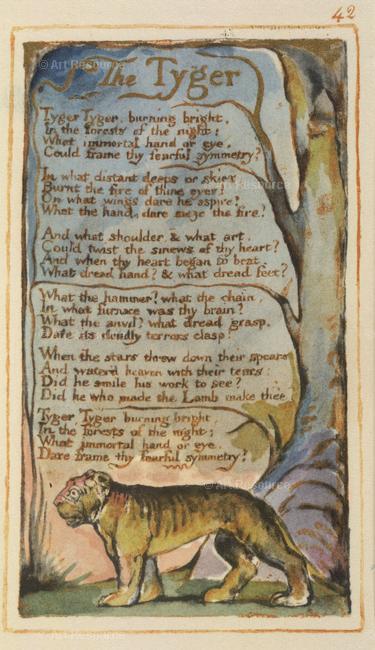 42
The Tyger
Tyger Tyger, burning bright,
In the forests of the night:
What immortal hand or eye,
Could frame thy fearful symmetry?
In what distant deeps or skies,
Burnt the fire of thine eyes?
On what wings dare he aspire?
What the hand, dare sieze the fire?
And what shoulder, & what art,
Could twist the sinews of thy heart?
And when thy heart began to beat,
What dread hand? & what dread feet?
What the hammer? what the chain,
In what furnace was thy brain?
What the anvil? what dread grasp,
Dare its deadly terrors clasp!
When the stars threw down their spears
And water'd heaven with their tears:
Did he smile his work to see?
Did he who made the Lamb make thee
Tyger Tyger burning bright,
In the forests of the night:
What immortal hand or eye,
Dare frame thy fearful symmetry?
© Art Resource
© Art Resource
© Art Resource
© Art Resource
© Art Resource